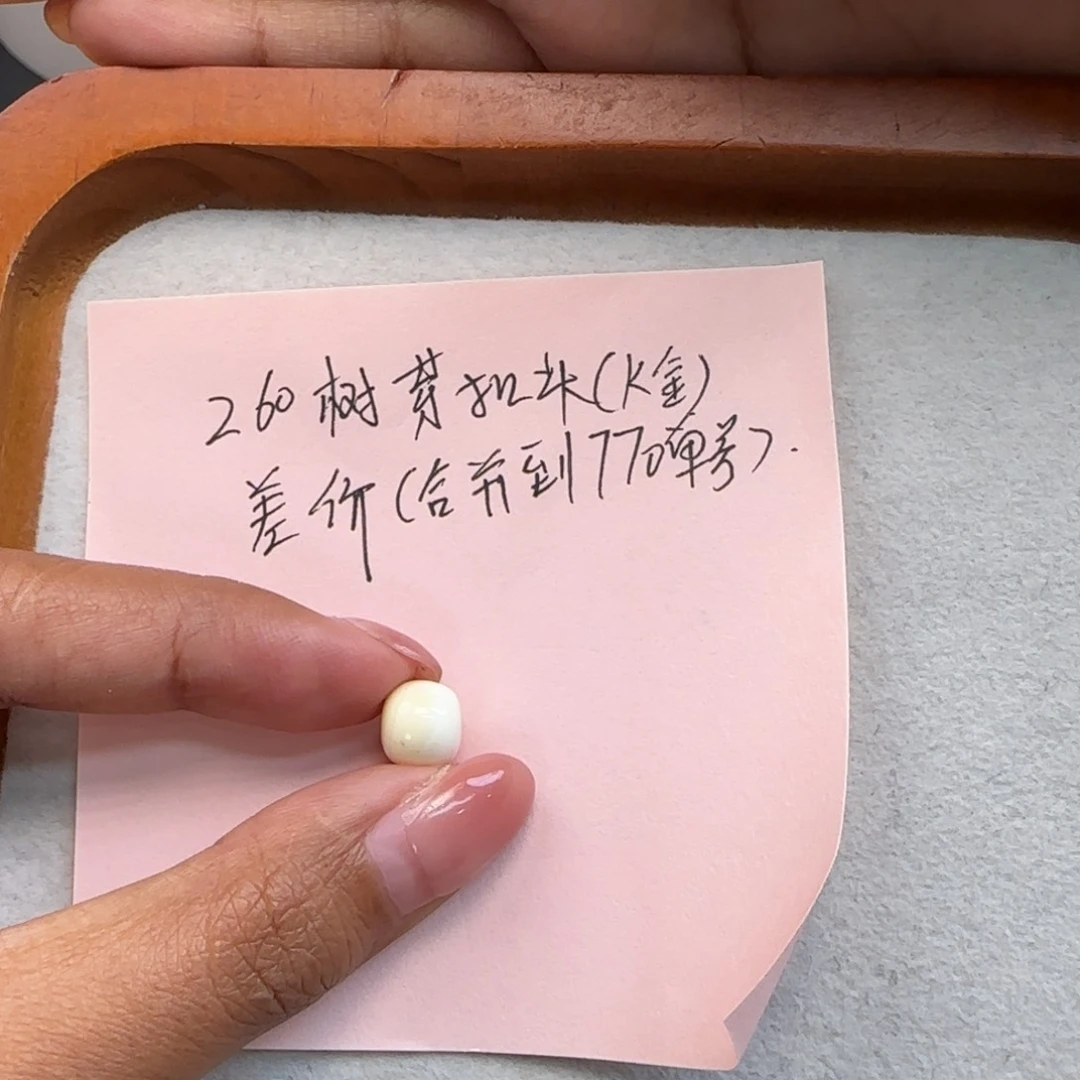 260树芽扣米(K金)
差价(合并到770单号).